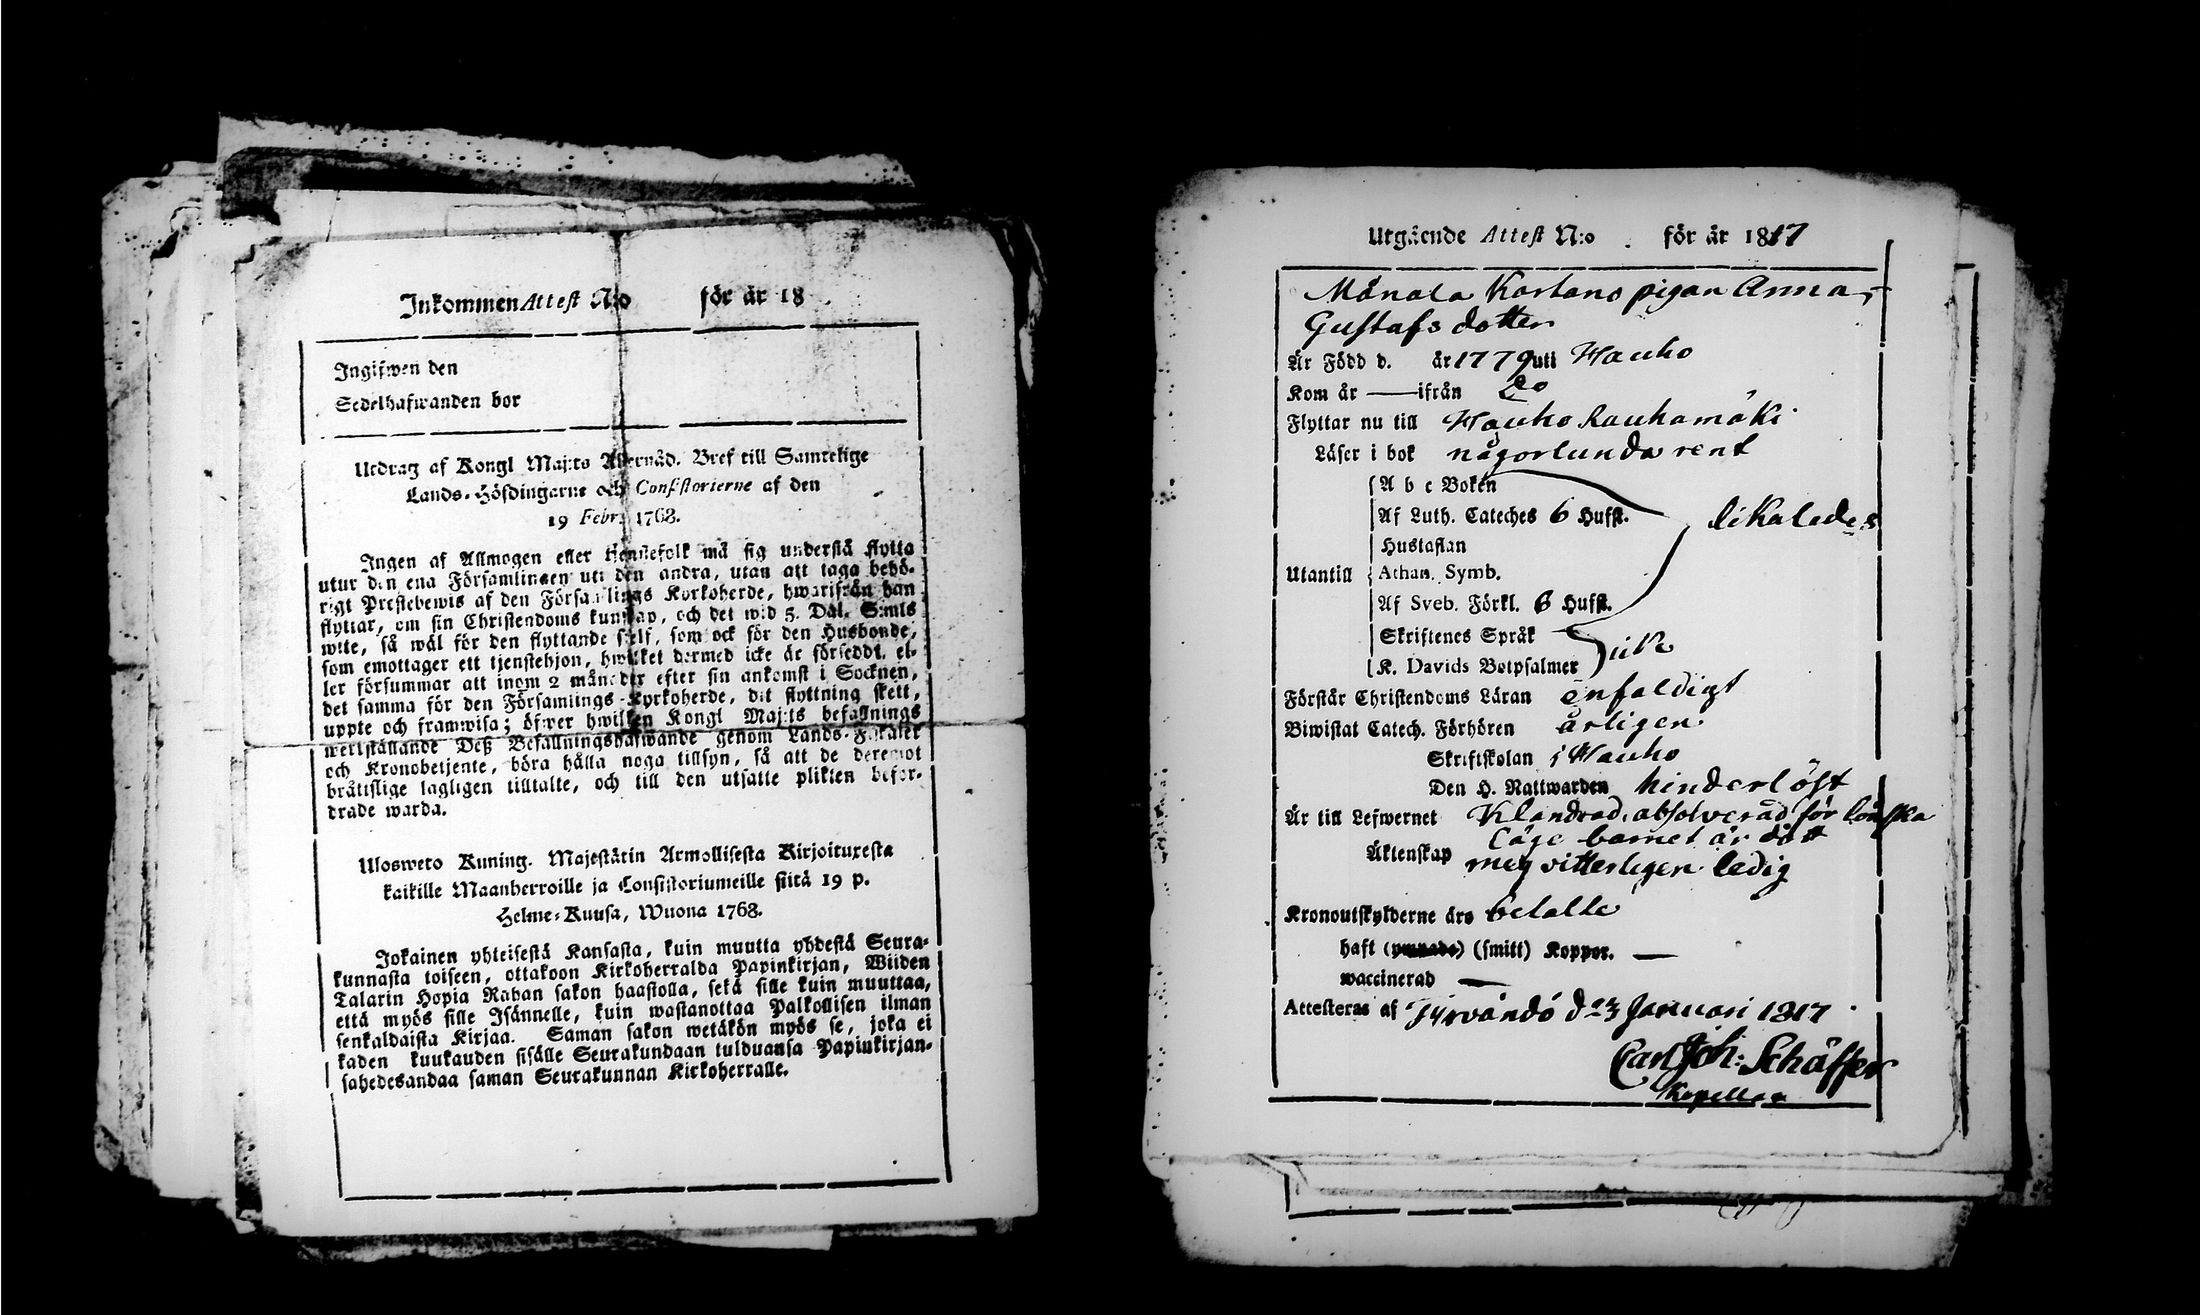 Inkommen Attest N:o för är 18
Ingifwen den
Sedelhafwanden bor
Utdrag af Kongl Maj:ts Allernåd. Bref till Samtelige
Lands-Höfdingarne och Consistorierne af den
19 Febr. 1768.
Ingen af Allmogen eller tjenstefolk må sig understå flytta
utur den ena Församlingen uti den andra, utan att taga behö-
rigt Prestebewis af den Församlings Kyrkoherde, hwarifrån han
flyttar, om sin Christendoms kunskap, och det wid 5. Dal. S:mts
wite, så wäl för den flyttande self, som ock för den Husbonde,
som emottager ett tjenstehjon, hwilket dermed icke är försedt, el-
ler försummar att inom 2 månader efter sin ankomst i Socknen,
det samma för den Församlings-Kyrkoherde, dit flyttning skett,
uppte och framwisa; öfwer hwilken Kongl Maj:ts befallnings
werkställande Deß Befallningshafwande genom Lands-Fiskaler
och Kronobetjente, böra hålla noga tillsyn, så att de deremot
bråttslige lagligen tilltalte, och till den utsatte plikten befor-
drade warda.
Ulosweto Kuning. Majestätin Armollisesta Kirjoituxesta
kaikille Maanherroille ja Consistoriumeille siitä 19 p.
Helme-Kuusa, Wuona 1768.
Jokainen yhteisestä Kansasta, kuin muutta yhdestä Seura-
kunnasta toiseen, ottakoon Kirkoherralda Papinkirjan, Wiiden
Talarin Hopia Rahan sakon haastolla, sekä sille kuin muuttaa,
että myös sille Isännelle, kuin wastanottaa Palkollisen ilman
senkaldaista Kirjaa. Saman sakon wetäkön myös se, joka ei
kaden kuukauden sisälle Seurakundaan tulduansa Papinkirjan-
sahedesandaa saman Seurakunnan Kirkoherralle.
Utgående Attest N:o för är 1817
Mänala Kartano pigan Anna
Gustafs dotter
Är Född d. är 1779 uti Hauho
Kom år — ifrån Do
Flyttar nu till Hauho Rauhamäki
Läser i bok någorlunda rent
A b c Boken
Af Luth. Cateches 6 Hufst. likaledes
Hustaflan
Utantill Athan. Symb.
Af Sveb. Förkl. 6 Hufst.
Skriftenes Språk
K. Davids Botpsalmer icke
Förstår Christendoms Läran enfaldigt
Biwistat Catech. Förhören årligen
Skriftskolan i Hauho
Den H. Nattwarden hinderlöst
Är till Lefwernet Klandrad, absolverad för lönska
läge barnet är dött
Äktenskap mig vitterligen ledig
Kronoutskylderne äro betalte
haft (ympade) (smitt) Koppor. —
waccinerad —
Attesteras af Tyrvändö d 23 Januari 1817
Carl Joh: Schäffer
Kapellan